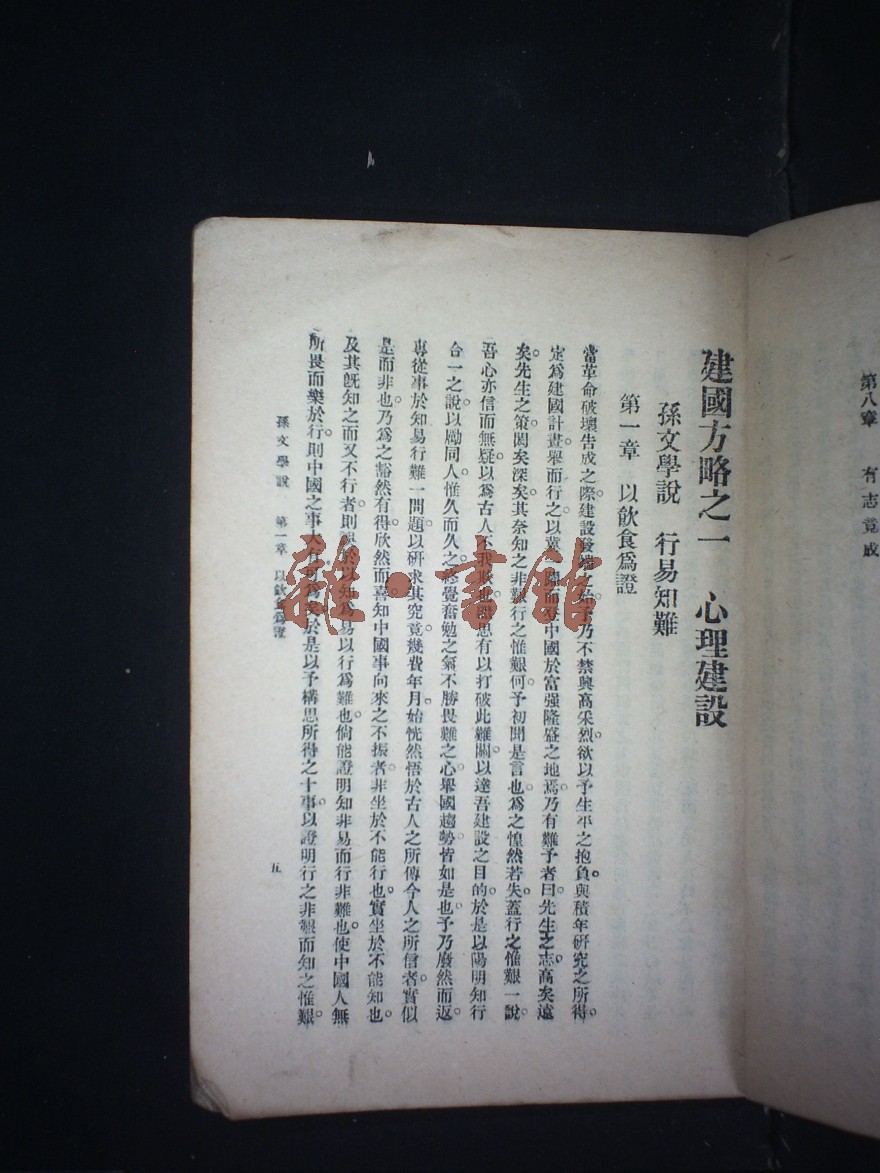 第八章　有志竟成
建國方略之一　心理建設
孫文學說　行易知難
第一章　以飲食爲證
當革命破壞告成之際。建設發端之始。予乃不禁興高采烈。欲以予生平之抱負。與積年研究之所得。
定爲建國計畫。舉而行之。以冀一躍而登中國於富强隆盛之地焉。乃有難予者曰。先生之志高矣遠
矣。先生之策閎矣深矣。其奈知之非艱行之惟艱何。予初聞是言也。爲之惶然若失。蓋行之惟艱一說。
吾心亦信而無疑。以爲古人不我欺也。繼思有以打破此難關。以達吾建設之目的。於是以陽明知行
合一之說。以勵同人。惟久而久之。終覺奮勉之氣。不勝畏難之心。舉國趨勢皆如是也。予乃廢然而返。
專從事於知易行難一問題。以研求其究竟。幾費年月。始恍然悟於古人之所傳。今人之所信者。實似
是而非也。乃爲之豁然有得。欣然而喜。知中國事向來之不振者。非坐於不能行也。實坐於不能知也。
及其既知之而又不行者。則誤於以知爲易以行爲難也。倘能證明知非易而行非難也。使中國人無
所畏而樂於行。則中國之事大有可爲矣。於是以予構思所得之十事。以證明行之非艱而知之惟艱。
孫文學說　第一章　以飲食爲證
五
雜·書館